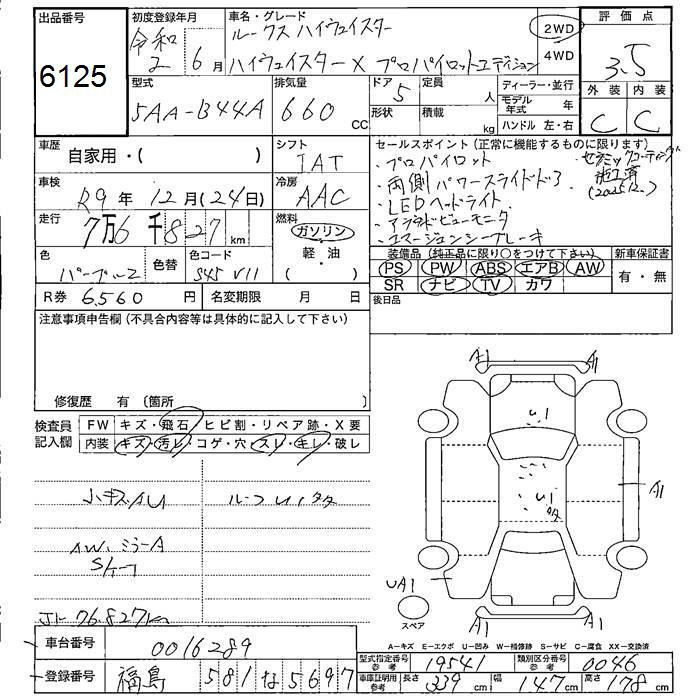 出品番号
6125
初度登録年月
令和 2 年 6 月
車名・グレード
ルークス ハイウェイスター
ハイウェイスター X プロパイロットエディション
2WD
4WD
評価点
3.5
外装 内装
C C
型式
5AA-B44A
排気量
660 CC
ドア 5
形状
定員 人
積載 kg
ディーラー・並行
モデル年式 年
ハンドル 左・右
車歴
自家用・( )
シフト
IAT
車検
R9 年 12 月(24日)
冷房
AAC
走行
7万6千827km
燃料
ガソリン
軽・油
( )
色
パープル2
色替
色コード
S45 V11
R券 6,560 円
名変期限 月 日
セールスポイント(正常に機能するものに限ります)
・プロパイロット
・両側パワースライドドア
・LEDヘッドライト
・アラウンドビューモニタ
・エマージェンシーブレーキ
・セラミックコーティング
施工済
装備品(純正品に限り○をつけて下さい)
PS PW ABS エアB AW
SR ナビ TV カワ
新車保証書
有・無
後日品
注意事項申告欄(不具合内容等は具体的に記入して下さい)
修復歴 有(箇所 )
検査員記入欄
FW キズ・飛石・ヒビ割・リペア跡・X要
内装 キズ・汚レ・コゲ・穴・スレ・キレ・破レ
小キズAU
ルーフU1タタ
AW、ミラーA
スレ
メーター 76.827km
A1
A1
U1
U1
タタ
A1
UA1
A1
A1
スペア
A-キズ E-エクボ U-凹み W-補修跡 S-サビ C-腐食 XX-交換済
車台番号
0016289
登録番号
福島 581 な 5697
型式指定番号参考
19541
類別区分番号参考
0046
車庫証明用参考
長さ 339 cm
幅 147 cm
高さ 178 cm